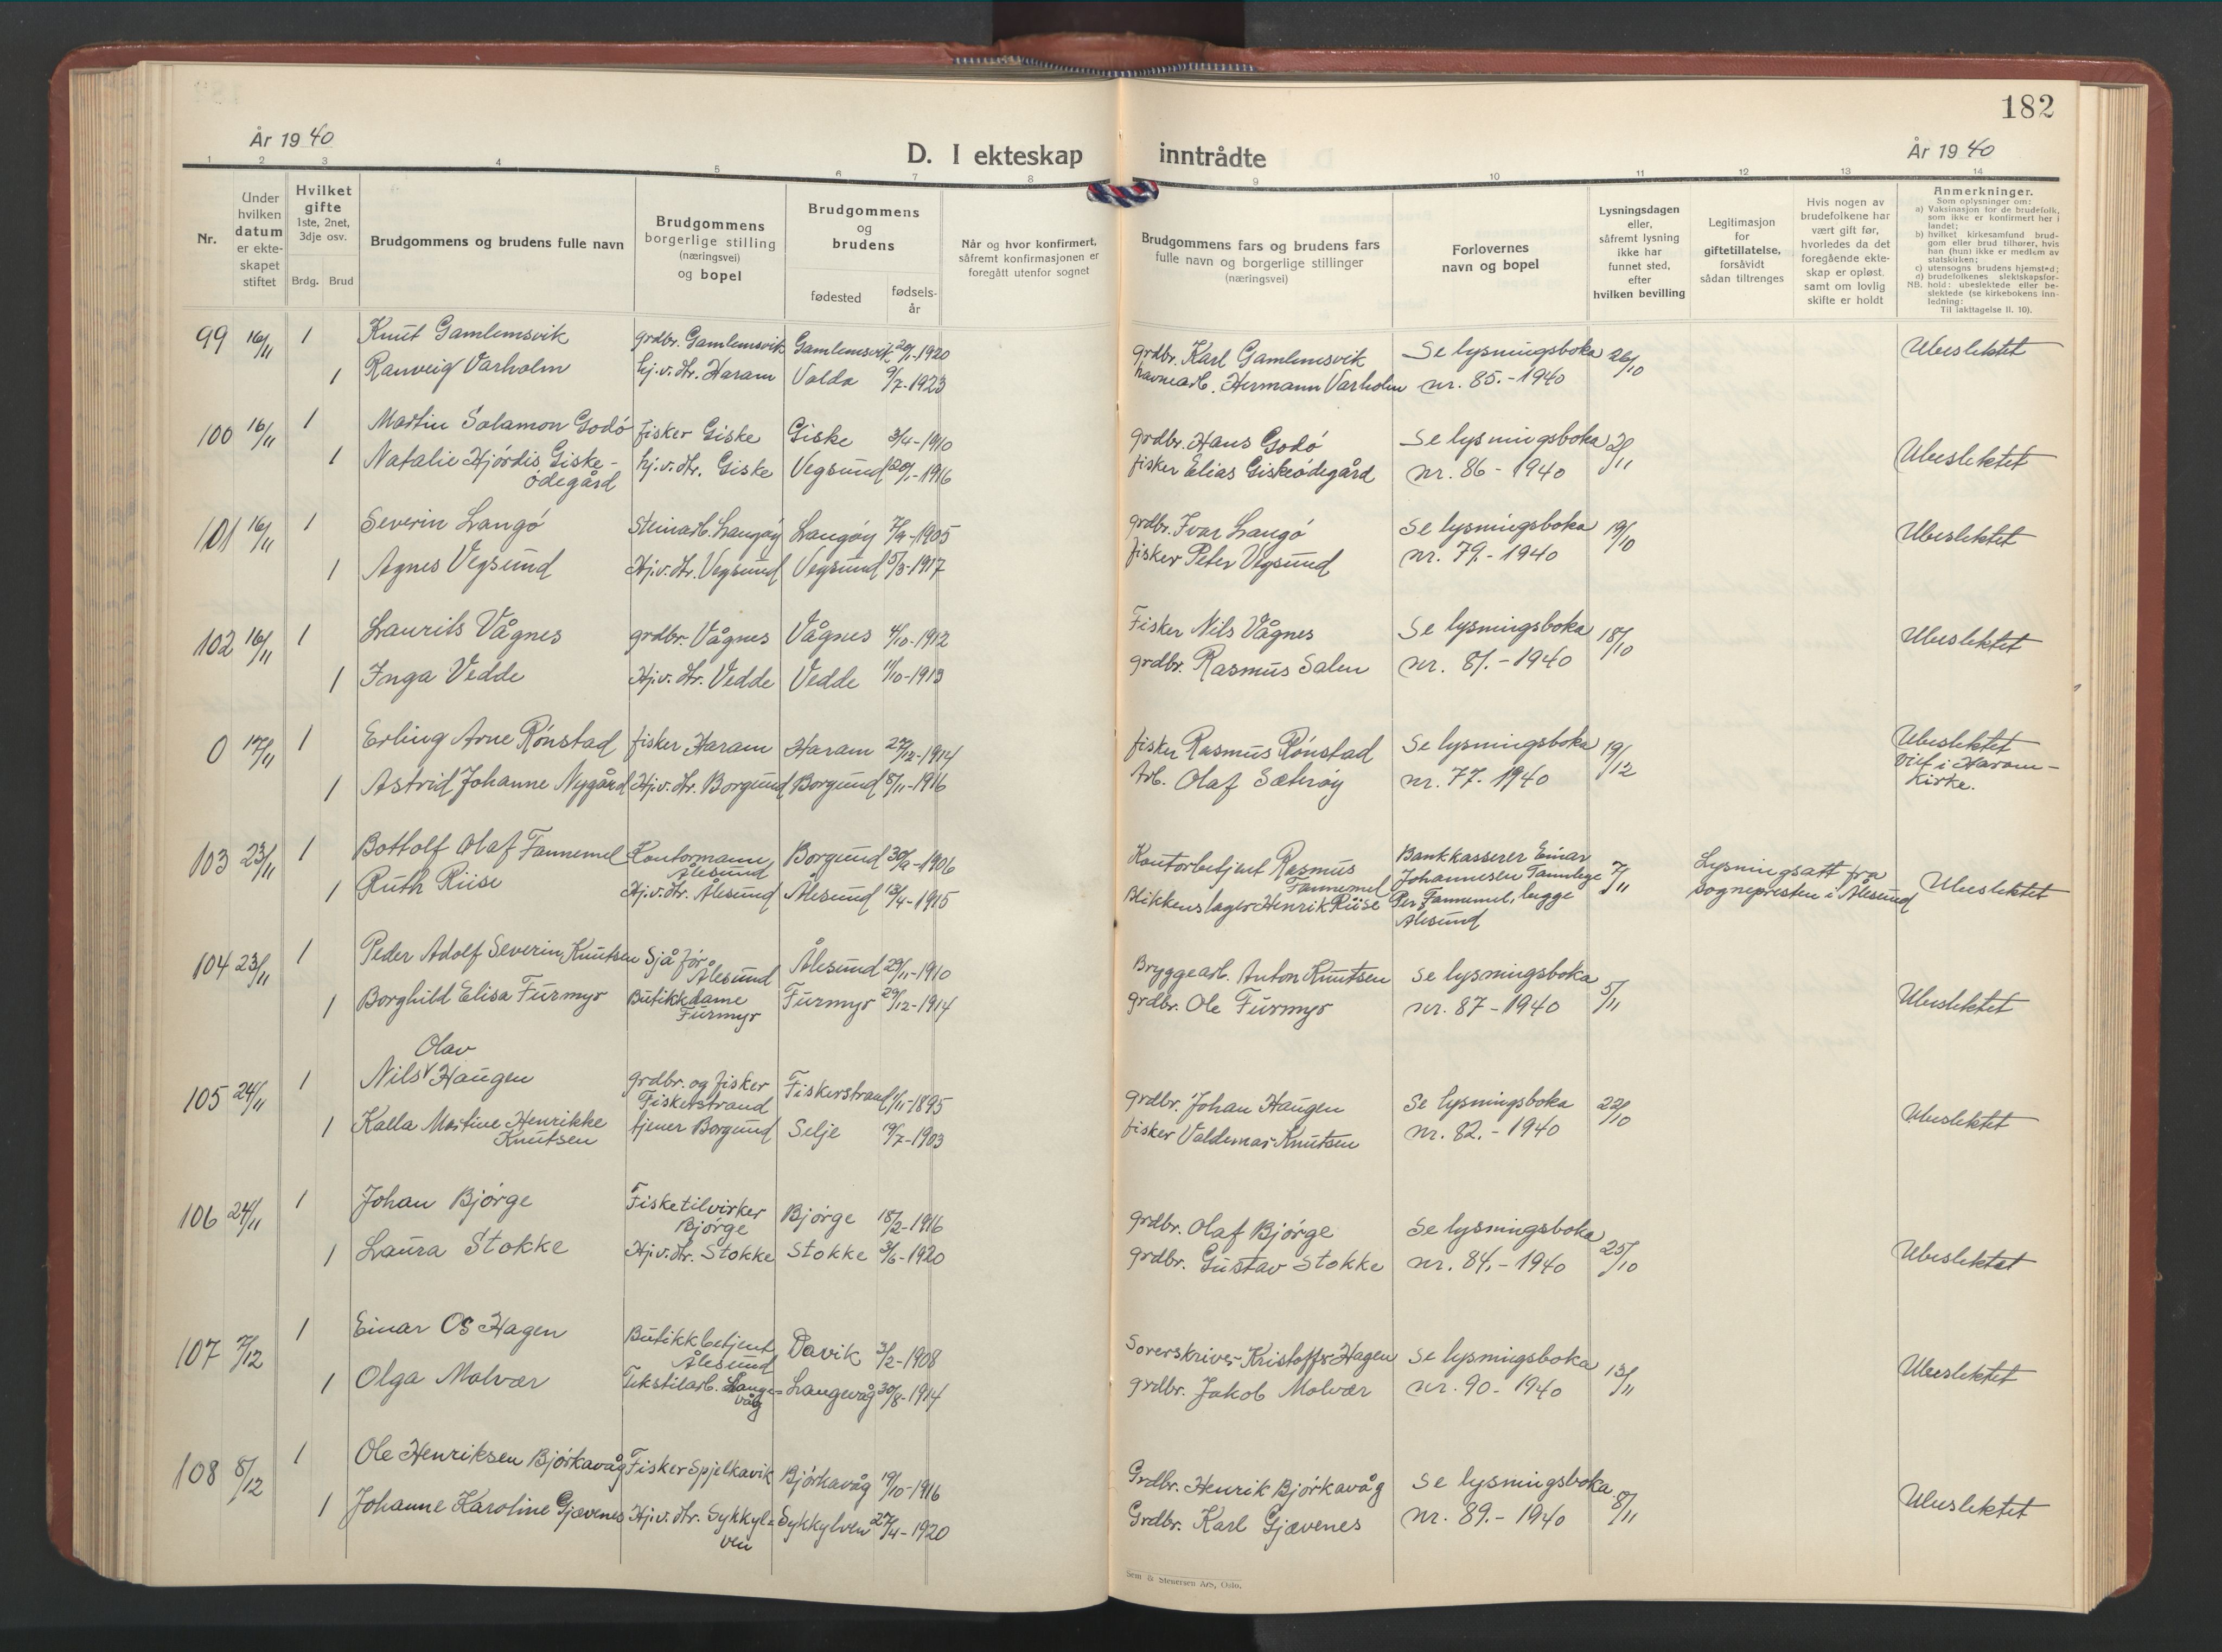 182
År 1940
D. I ekteskap inntrådte
År 1940
1 2 3 4 5 6 7 8 9 10 11 12 13 14
Nr.
Under hvilken datum er ekteskapet stiftet
Hvilket gifte 1ste, 2net, 3dje osv.
Brdg. Brud
Brudgommens og brudens fulle navn
Brudgommens borgerlige stilling (næringsvei) og bopel
Brudgommens og brudens
fødested
fødselsår
Når og hvor konfirmert, såfremt konfirmasjonen er foregått utenfor sognet
Brudgommens fars og brudens fars fulle navn og borgerlige stillinger (næringsvei)
Forlovernes navn og bopel
Lysningsdagen eller, såfremt lysning ikke har funnet sted, efter hvilken bevilling
Legitimasjon for giftetillatelse, forsåvidt sådan tiltrenges
Hvis nogen av brudefolkene har vært gift før, hvorledes da det foregående ekteskap er opløst. samt om lovlig skifte er holdt
Anmerkninger.
Som oplysninger om:
a) Vaksinasjon for de brudefolk, som ikke er konfirmert her i landet;
b) hvilket kirkesamfund brudgom eller brud tilhører, hvis han (hun) ikke er medlem av statskirken;
c) utensogns brudens hjemsted;
d) brudefolkenes slektskapsforhold: ubeslektede eller beslektede (se kirkebokens innledning:
NB. Til iakttagelse II. 10).
99 16/11 1 Knut Gamlemsvik grdbr. Gamlemsvik Gamlemsvik 20/1-1920 grdbr. Karl Gamlemsvik Se lysningsboka 26/10 Ubeslektet
1 Ranveig Varholm hj.v.dtr. Haram Valda 9/7-1923 havnearb. Hermann Varholm nr. 85.-1940
100 16/11 1 Martin Salamon Godó fisker Giske Giske 3/4-1910 grdbr. Hans Godó Se lysningsboka 2/11 Ubeslektet
1 Natalie Hjórdis Giske- hj.v.dtr. Giske Vegsund 20/1-1916 fisker Elias Giskeódegård nr. 86-1940
ódegård
101 16/11 1 Severin Langó Steinarb. Langóy Langóy 7/9-1905 grdbr. Ivar Langó Se lysningsboka 19/10 Ubeslektet
1 Agnes Vegsund Hj.v.dtr. Vegsund Vegsund 5/3-1917 fisker Peter Vegsund nr. 79.-1940
102 16/11 1 Laurits Vågnes grdbr. Vågnes Vågnes 4/10-1912 Fisker Nils Vågnes Se lysningsboka 18/10 Ubeslektet
1 Inga Vedde Hj.v.dtr. Vedde Vedde 11/10-1913 grdbr. Rasmus Salen nr. 81.-1940
0 17/11 1 Erling Arne Rónstad fisker Haram Haram 27/12-1914 fisker Rasmus Rónstad Se lysningsboka 19/12 Ubeslektet
1 Astrid Johanne Nygård Hj.v.dtr. Borgund Borgund 8/11-1916 Arb. Olaf Sæteróy nr. 77. 1940 viet i Haram-
Kirke.
103 23/11 1 Bottolf Olaf Fannemel Kontormann, Ålesund Borgund 30/9-1906 Kontorbetjent Rasmus Fannemel Bankkasserer Einar Johannesen Tannlege 7/11 Lysningsatt fra Ubeslektet
1 Ruth Riise Hj.v.dtr. Ålesund Ålesund 13/4-1915 Blikkenslager Henrik Riise Per Fannemel, begge Ålesund sognepresten i Ålesund
104 23/11 1 Peder Adolf Severin Knutsen Sjåfór Ålesund Ålesund 29/11-1910 Bryggearb. Anton Knutsen Se lysningsboka 5/11 Ubeslektet
1 Borghild Elisa Furmyr Butikkdame Furmyr Furmyr 29/12-1914 grdbr. Ole Furmyr nr. 87-1940
Olav
105 24/11 1 Nils Haugen grdbr. og fisker Fiskerstrand Fiskerstrand 1/11-1895 grdbr. Johan Haugen Se lysningsboka 22/10 Ubeslektet
1 Kalla Martine Henrikke Knutsen tjener Borgund Selje 19/7-1903 fisker Valdemar Knutsen nr. 82.-1940
106 24/11 1 Johan Bjórge Fisketilvirker Bjórge Bjórge 18/2-1916 grdbr. Olaf Bjórge Se lysningsboka 25/10 Ubeslektet
1 Laura Stokke Hj.v.dtr. Stokke Stokke 3/6-1920 grdbr. Gustav Stokke nr. 84.-1940
107 7/12 1 Einar Os Hagen Butikkbetjent Ålesund Davik 3/2-1908 Sorenskriver Kristoffer Hagen Se lysningsboka 13/11 Ubeslektet
1 Olga Molvær Tekstilarb. Langevåg Langevåg 30/8-1914 grdbr. Jakob Molvær nr. 90-1940
108 8/12 1 Ole Henriksen Bjórkavåg Fisker Spjelkavik Bjórkavåg 19/10-1916 Grdbr. Henrik Bjórkavåg Se lysningsboka 8/11 Ubeslektet
1 Johanne Karoline Gjævenes Hj.v.dtr. Sykkylven Sykkylven 27/4-1920 Grdbr. Karl Gjævenes nr. 89.-1940
Sem & Stenersen A/S, Oslo.